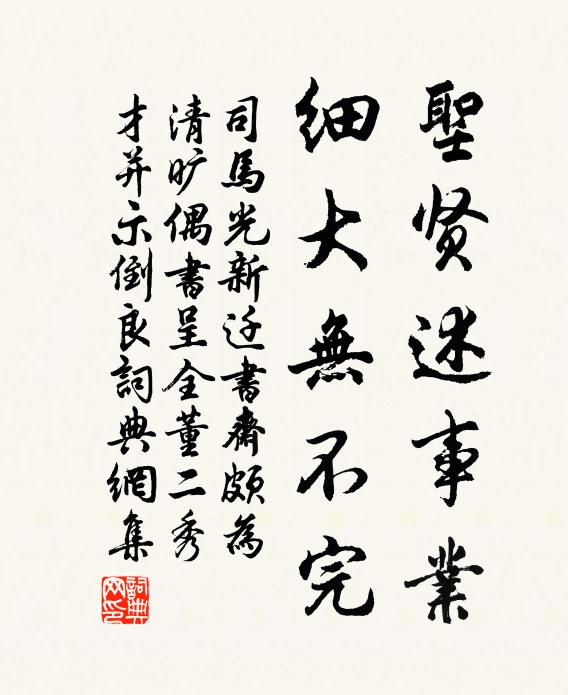 聖贤述事業
細大無不完
司馬光新迁書齋頗為
清旷偶書呈全董二秀
才并示侄良詞典網集
詞典网印